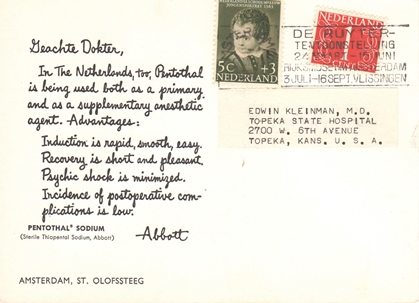 Geachte Dokter,
In The Netherlands, too, Pentothal
is being used both as a primary
and as a supplementary anesthetic
agent. Advantages:
Induction is rapid, smooth, easy.
Recovery is short and pleasant.
Psychic shock is minimized.
Incidence of postoperative com-
plications is low.
PENTOTHAL® SODIUM
(Sterile Thiopental Sodium, Abbott)
Abbott
AMSTERDAM, ST. OLOFSSTEEG
5C +3
NEDERLAND
NEDERLAND
DE RUYTER-
TENTOONSTELLING
3 JULI-16 SEPT. VLISSINGEN
EDWIN KLEINMAN, M.D.
TOPEKA STATE HOSPITAL
2700 W. 6TH AVENUE
TOPEKA, KANS. U. S. A.